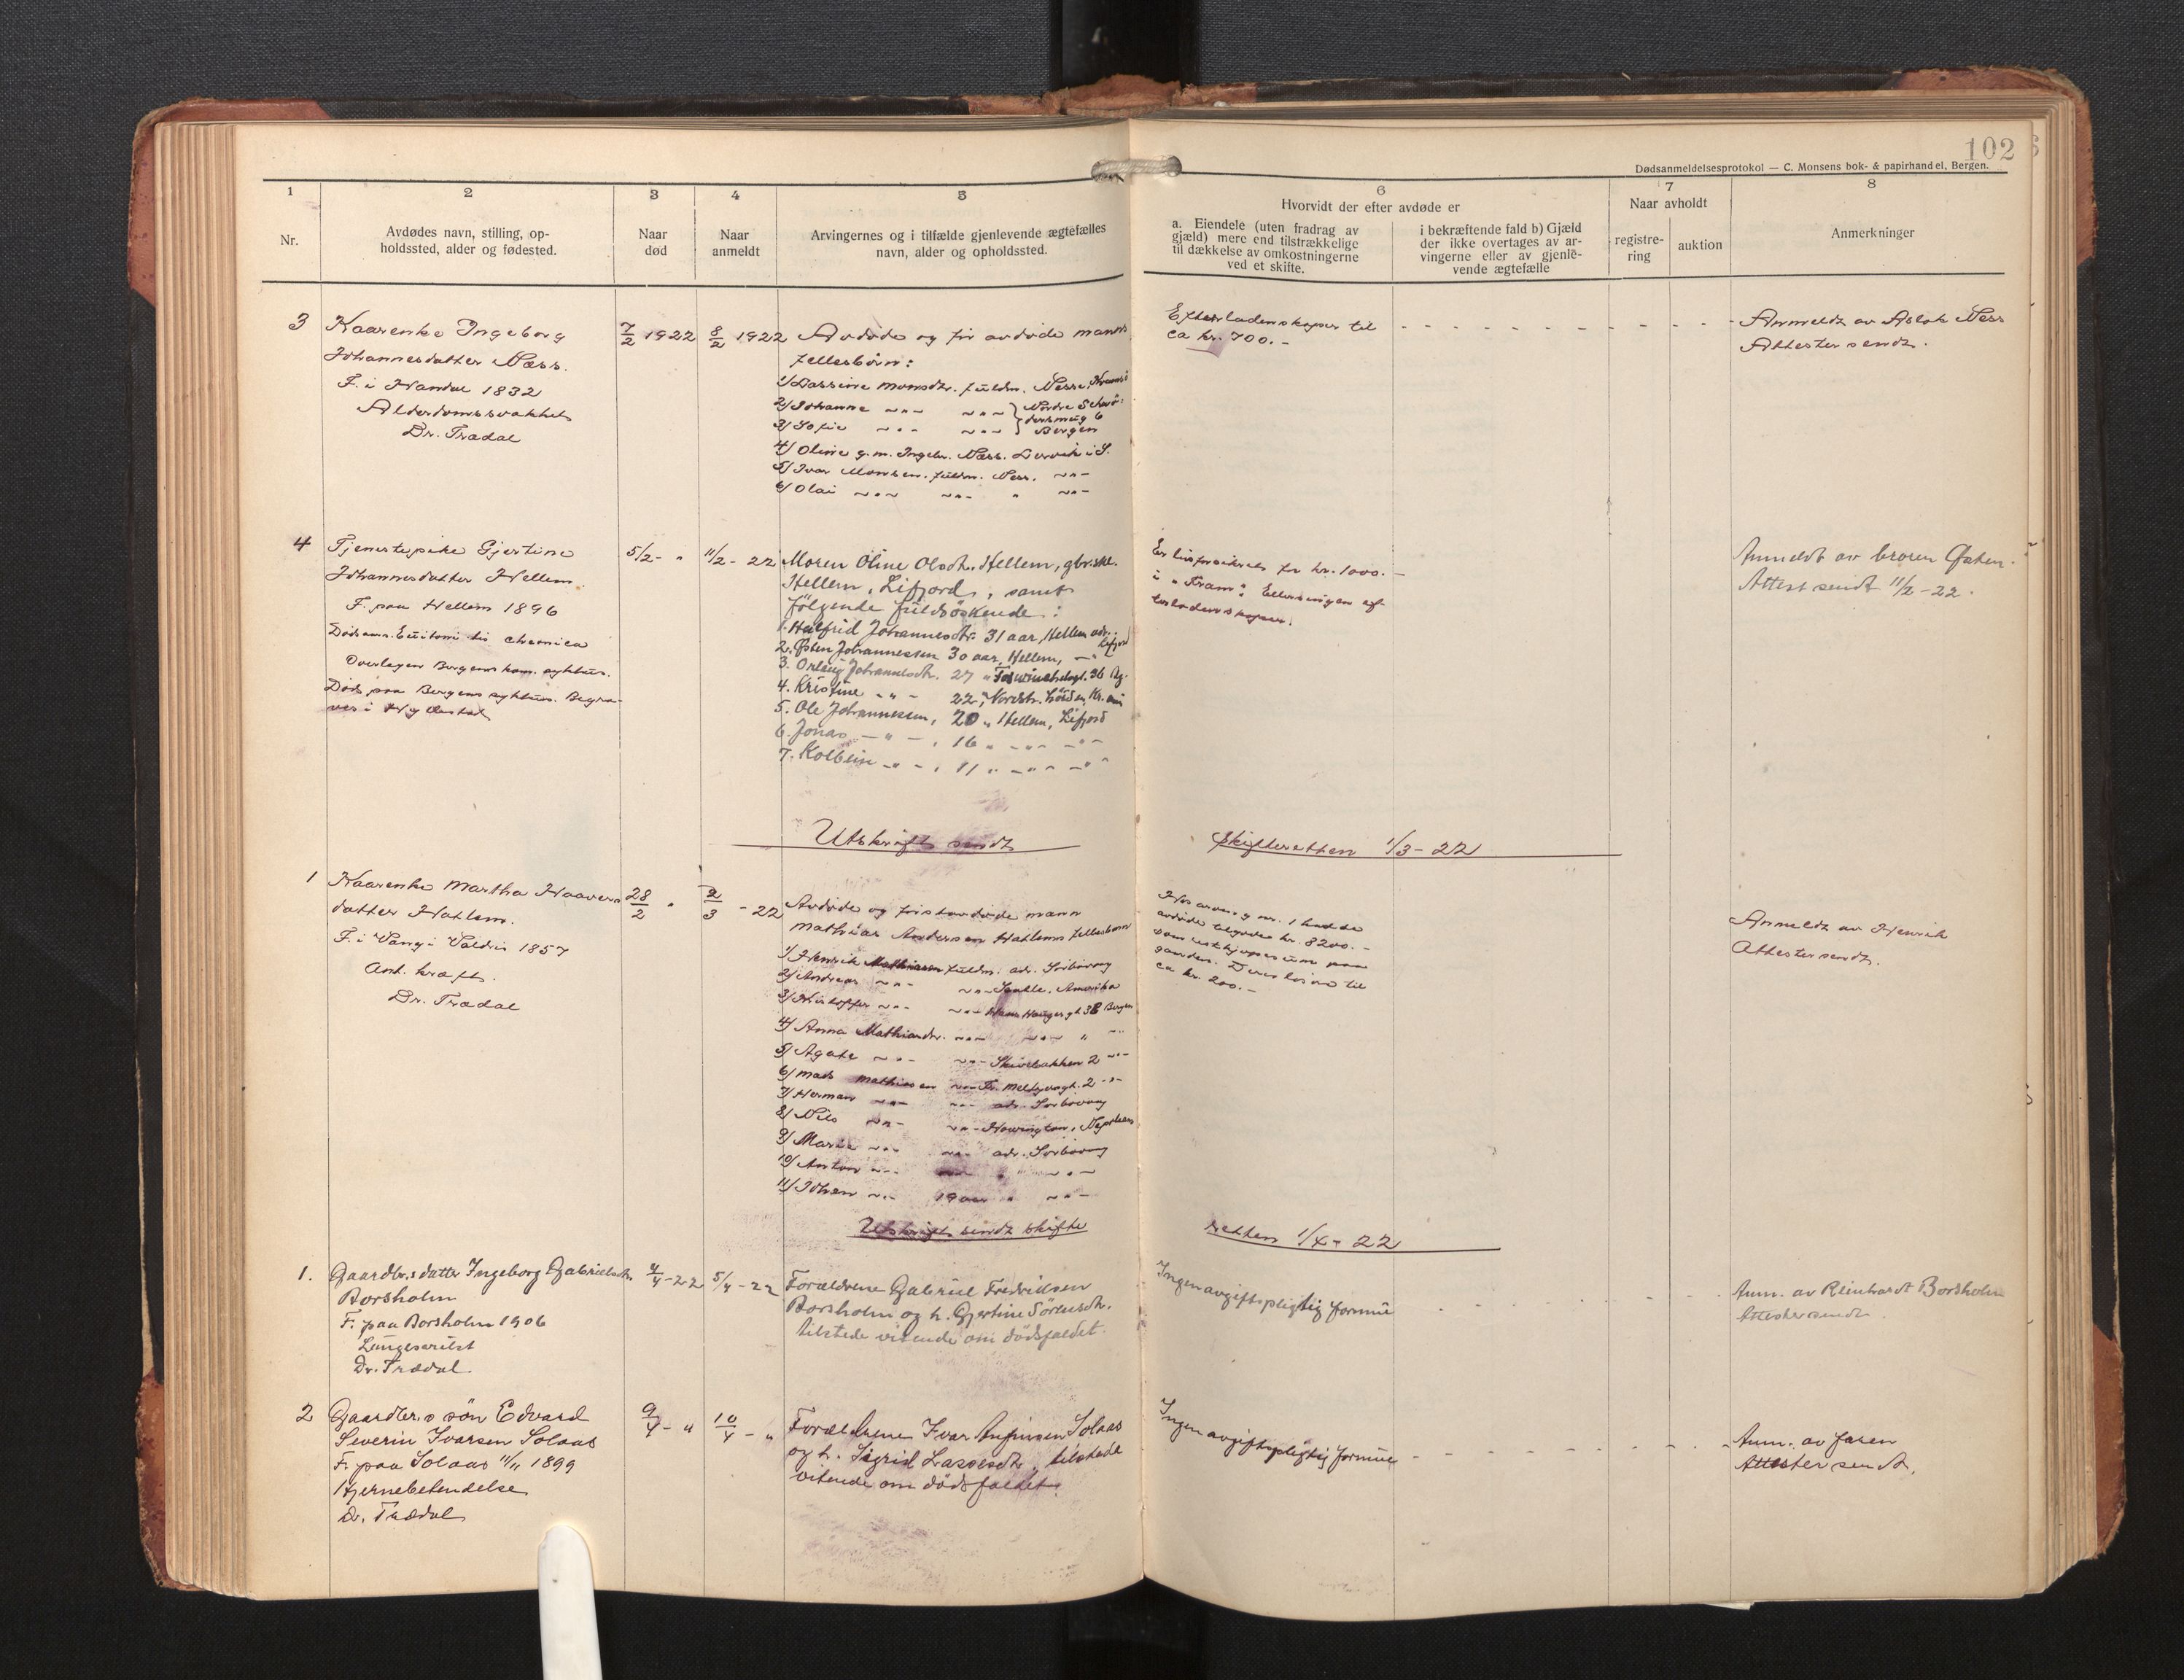 102
Dødsanmeldelsesprotokol — C. Monsens bok- & papirhandel, Bergen.
1
2
3
4
5
6
7
8
Nr.
Avdødes navn, stilling, op-
holdssted, alder og fødested.
Naar
død
Naar
anmeldt
Arvingernes og i tilfælde gjenlevende ægtefælles
navn, alder og opholdssted.
Hvorvidt der efter avdøde er
a. Eiendele (uten fradrag av
gjæld) mere end tilstrækkelige
til dækkelse av omkostningerne
ved et skifte.
i bekræftende fald b) Gjæld
der ikke overtages av ar-
vingerne eller av gjenle-
vende ægtefælle
Naar avholdt
registre-
ring
auktion
Anmerkninger
3
Kaarenke Ingeborg
Johannesdatter Næss.
F. i Nandal 1832
Alderdomssvakhet
Dr. Trædal
7/2 1922
8/2 1922
Avdøde og før avdøde manns
fellesbörn:
1/ Lassine Monsdtr. fuldm. Nesse,
2/ Johanne -"- -"- Nordre Schrö-
dersmug 6
3/ Sofie -"- -"- Bergen
4/ Oline g.m. Ingebr. Næss. Leirvik i S.
5/ Ivar Monsen. fuldm. Ness. -"-
6/ Olai -"- -"- " -"-
Efterladenskaper til
ca kr. 700.-
Anmeldt av Aslak Ness
Attester sendt.
4
Tjenestepike Gjertine
Johannesdatter Hellem.
F. paa Hellem 1896
Overlægen Bergens kom. sykehus.
Död paa Bergens sykehus. Begra-
ves i Hyllestad
5/2 - "
11/2 - 22
Moren Oline Olsdtr. Hellem, gbr.ske.
Hellem, Lifjord, samt
følgende fuldsøskende:
1. Halfrid Johannesdtr. 31 aar, Hellem adr. Lifjord
2. Østen Johannessen 30 aar, Hellem, -"-
3. Johannesdtr. 27 " 36 Bg.
4. Kristine -"- 22,
5. Ole Johannessen, 20 " Hellem, Lifjord
6. Jonas -"-, 16 " -"- -"-
7. Kolbein -"-, 11 " -"- -"-
Er livsforsikret for kr. 1000.-
i "Fram". Ellers ingen ef-
terladenskaper.
Anmeldt av broren Østen.
Attest sendt 11/2 - 22.
Utskrift sendt skifteretten 1/3 - 22
1
Kaarenke Martha Haavers
datter Hatlem.
F. i Vang i Valdris 1857
Ant. kræft.
Dr. Trædal
28/2 "
2/3 - 22
Avdøde og førstavdøde mann
Mathias Andersen Hatlems fellesbarn
1/ Henrik Mathiassen fuldm. adr. Sørbøvaag
2/ Andreas -"- -"- Seattle, Amerika
3/ Kristoffer -"- -"- Hans Hauges gt. 38 Bergen
4/ Anna Mathiasdtr. -"- -"- " -"-
5/ Agate -"- -"- Skivebakken 2 -"-
6/ Mads Mathiesen -"- Fr. Meltzersgt. 2 -"-
7/ Herman -"- -"- adr. Sørbøvaag
8/ Nils -"- -"-
9/ Marie -"- -"- adr. Sørbøvaag
10/ Anton -"- -"- " -"-
11/ Johan -"- 19 aar " -"-
Hos arving nr. 1 hadde
avdøde tilgode kr. 8200.-
som restkjøpesum paa
gaarden. Deres løsøre til
ca kr. 200.-
Anmeldt av Henrik
Attester sendt.
Utskrift sendt skifte
retten 1/4 - 22
1.
Gaardbr.s datter Ingeborg Gabrielsdtr.
Borsholm
F. paa Borsholm 1906
Lungesvulst
Dr. Trædal
4/4 - 22
5/4 - 22
Forældrene Gabriel Fredriksen
Borsholm og h. Gjertine Sørensdtr.
tilstede vitende om dödsfaldet.
Ingen avgiftspligtig formue
Anm. av Reinhardt Borsholm
Attester sendt.
2
Gaardbr.s søn Edvard
Severin Ivarsen Solaas
F. paa Solaas 11/11 1899
Hjernebetendelse
Dr. Trædal
9/4 - "
10/4 - "
Forældrene Ivar Anfinsen Solaas
og h. Sigrid Lassesdtr. tilstede
vitende om dödsfaldet.
Ingen avgiftspligtig formue
Anm. av faren
Attester sendt.